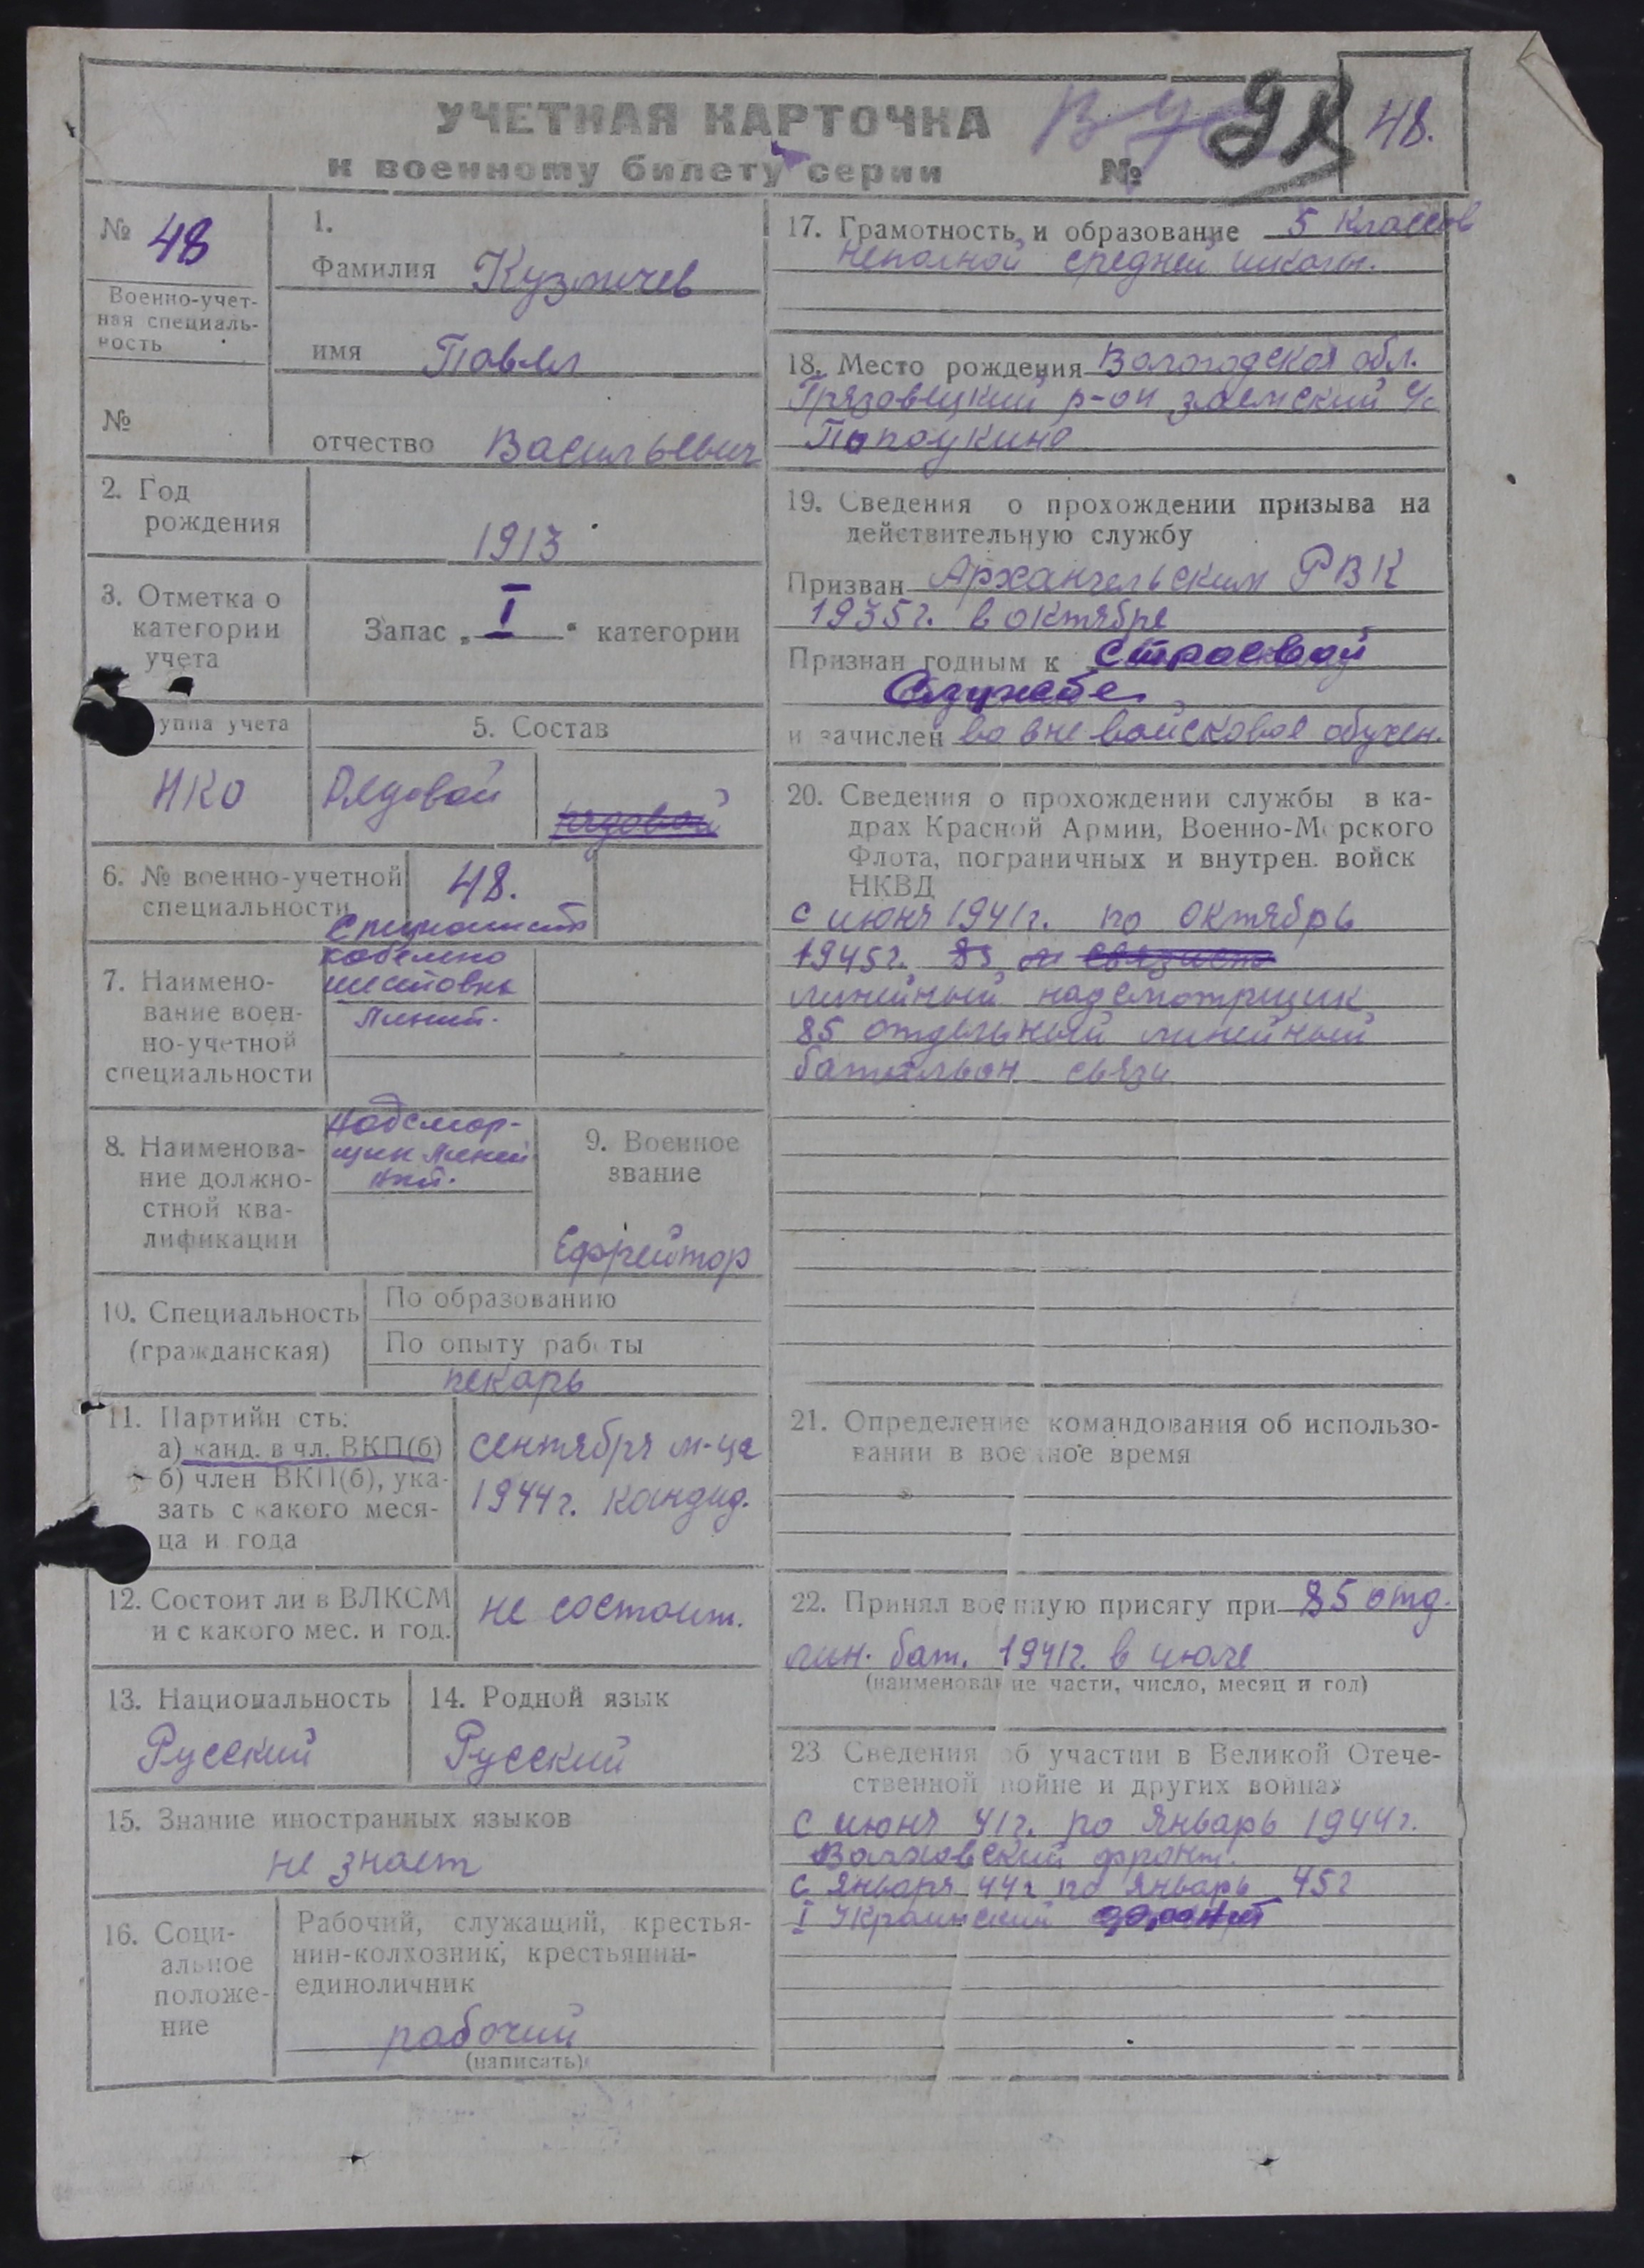 УЧЕТНАЯ КАРТОЧКА
к военному билету серии №
48.
№ 48
Военно-учет-
ная специаль-
ность
№
1.
Фамилия Кузмичев
имя Павел
отчество Васильевич
2. Год
рождения
1913
3. Отметка о
категории
учета
Запас „I" категории
уппа учета
НКО
5. Состав
Рядовой
рядовой
6. № военно-учетной
специальности
48.
7. Наимено-
вание воен-
но-учетной
специальности
Специалист
кабельно
шестовых
Линий.
8. Наименова-
ние должно-
стной ква-
лификации
Надсмор-
щик Линей
ный.
9. Военное
звание
Ефрейтор
10. Специальность
(гражданская)
По образованию
По опыту работы
пекарь
11. Партийн сть:
а) канд. в чл. ВКП(б)
б) член ВКП(б), ука-
зать с какого меся-
ца и года
сентября м-ца
1944г. кандид.
12. Состоит ли в ВЛКСМ
и с какого мес. и год.
не состоит.
13. Национальность
Русский
14. Родной язык
Русский
15. Знание иностранных языков
не знает
16. Соци-
альное
положе-
ние
Рабочий, служащий, крестья-
нин-колхозник, крестьянин-
единоличник
рабочий
(написать)
17. Грамотность и образование 5 классов
неполной средней школы.
18. Место рождения Вологодская обл.
Грязовецкий р-он заемский с/с
19. Сведения о прохождении призыва на
действительную службу
Призван Архангельским РВК
1935г. в октябре
Признан годным к строевой
службе
и зачислен во вне войсковое обучен.
20. Сведения о прохождении службы в ка-
драх Красной Армии, Военно-Морского
Флота, пограничных и внутрен. войск
НКВД
с июня 1941г. по октябрь
1945г. 85 связист
линейный надсмотрщик
85 отдельный линейный
батальон связи
21. Определение командования об использо-
вании в военное время
22. Принял военную присягу при 85 отд.
лин. бат. 1941г. в июле
(наименование части, число, месяц и год)
23 Сведения об участии в Великой Отече-
ственной войне и других войнах
с июня 41г. по январь 1944г.
Волховский фронт.
с января 44г по январь 45г
I Украинский фронт